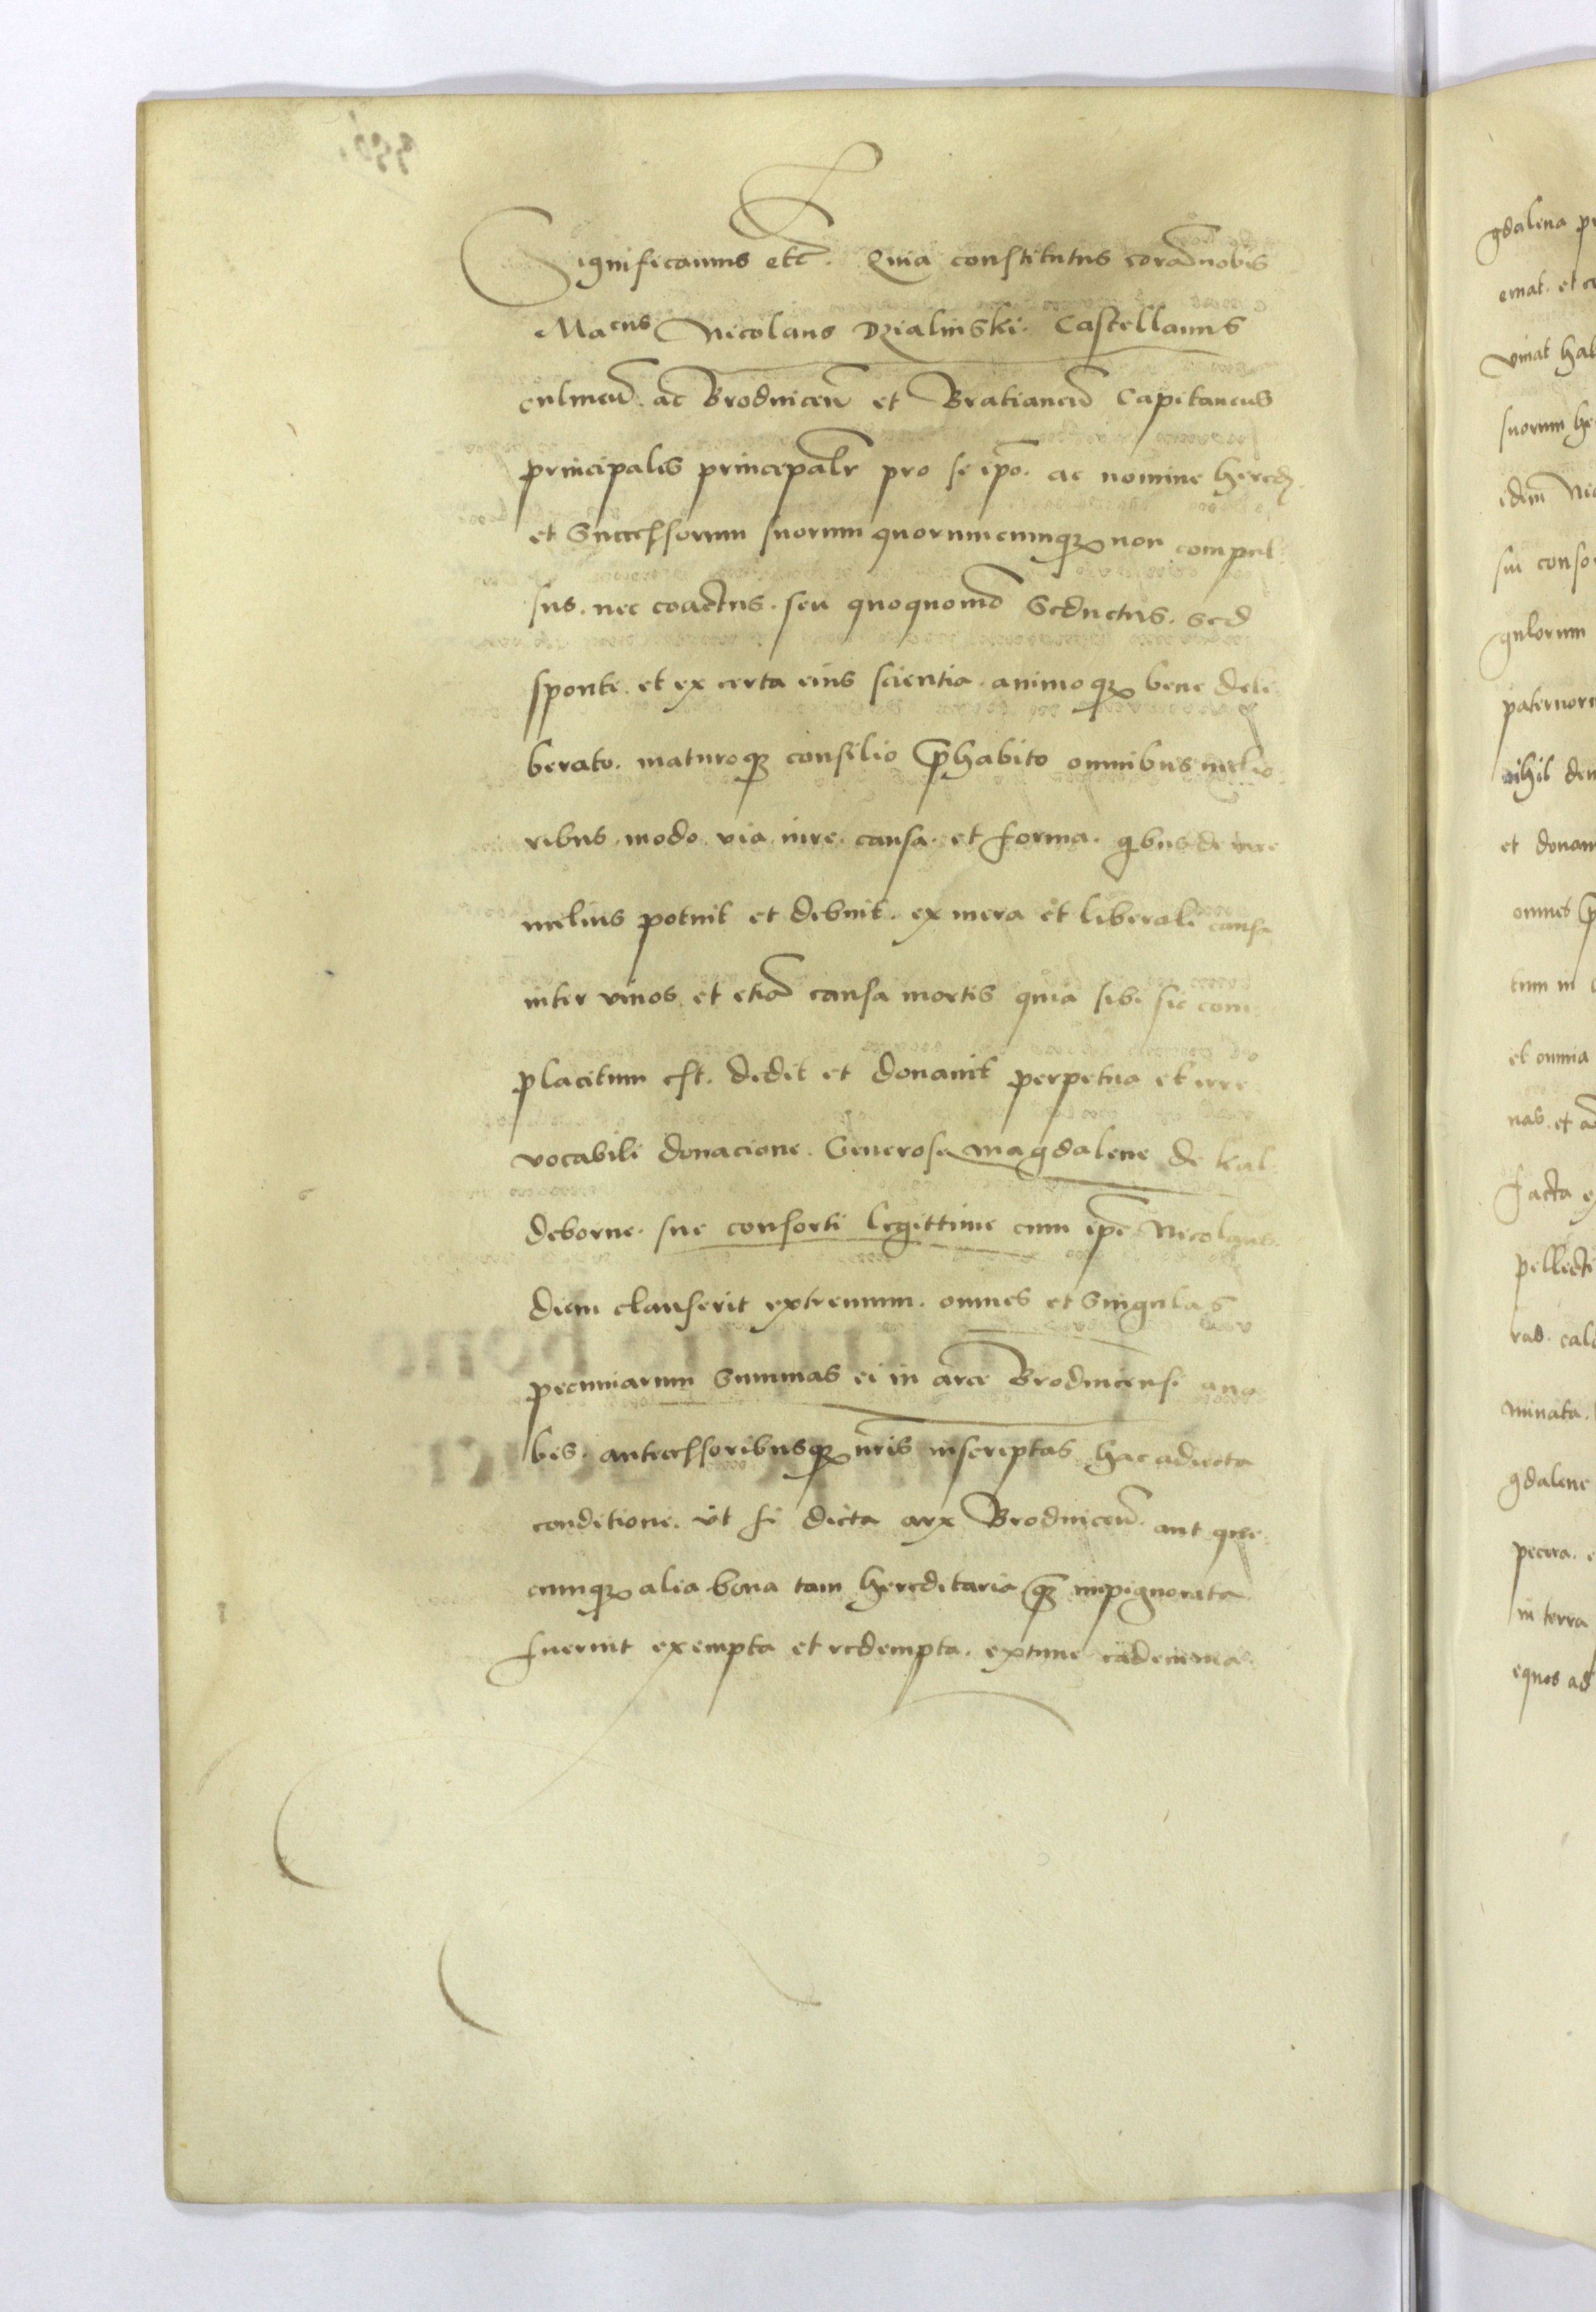 Significamus etc. Quia constitutus coram nobis
Macus Nicolaus Dzialinski. Castellanus
culmen. ac Brodnicen et Bratianen Capitaneus
principalis principalr pro se ipo. ac nomine hered.
et Successorum suorum quorumcumq non compul
sus. nec coactus. seu quoquomo Seductus. sed
sponte. et ex certa eius scientia. animoq bene deli
berato. maturoq consilio phabito omnibus melio
ribus. modo. via. iure. causa. et forma. qbus de iure
melius potuit et debuit. ex mera et liberali causa
inter vivos et etia causa mortis quia sibi sic com
placitum est. dedit et donavit perpetua et irre
vocabili donacione. Generose Magdalene de kal
deborne. sue consorti legittime cum ipe Nicolaus
diem clauserit extremum. omnes et Singulas
pecuniarum Summas ei in arce Brodnicensi a no
bis. antecessoribusq nris inscriptas hac adiecta
conditione. ut si dicta arx Brodnicen. aut que
cumq alia bona tam hereditaria q impignorata
fuerint exempta et redempta. extunc eadem ma
gdalena
emat. et
vivat
suorum
idem
sui
gulorum
nihil
et
omnes
tum in
et omnia
nas. et
facta
minata.
gdalene
in terra
equos ad